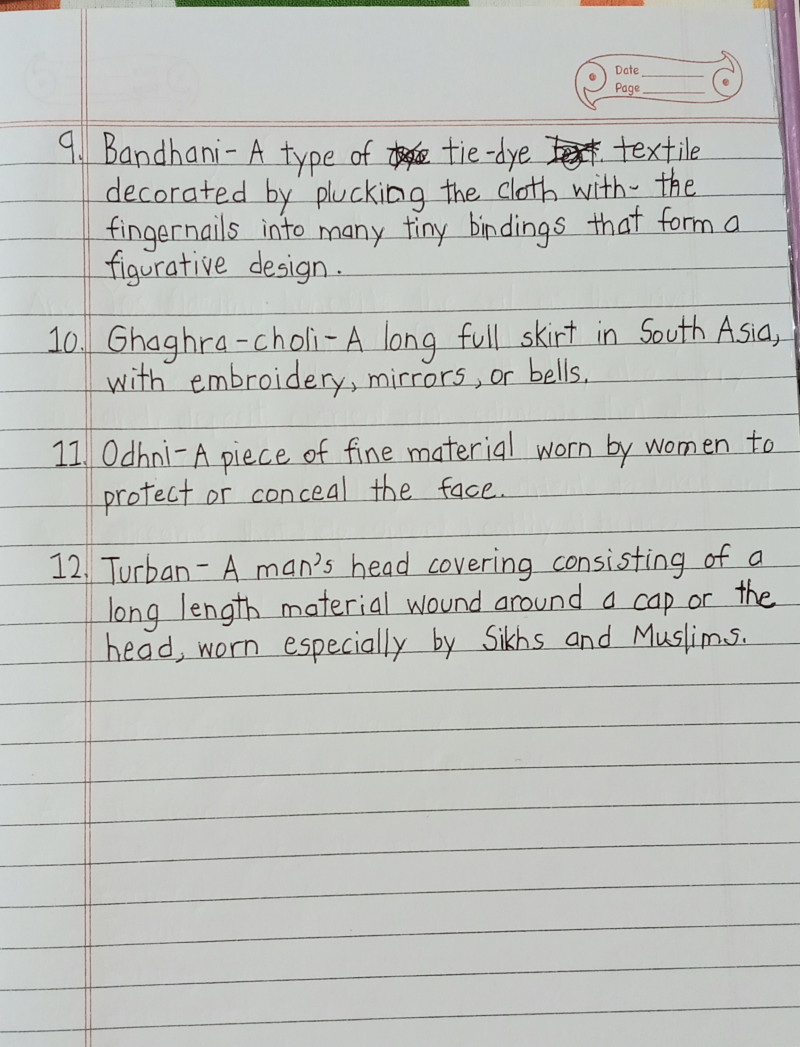 Date
Page
9. Bandhani- A type of tie-dye text. textile
decorated by plucking the cloth with- the
fingernails into many tiny bindings that form a
figurative design.
10. Ghaghra-choli- A long full skirt in South Asia,
with embroidery, mirrors, or bells.
11. Odhni- A piece of fine material worn by women to
protect or conceal the face.
12. Turban- A man's head covering consisting of a
long length material wound around a cap or the
head, worn especially by Sikhs and Muslims.